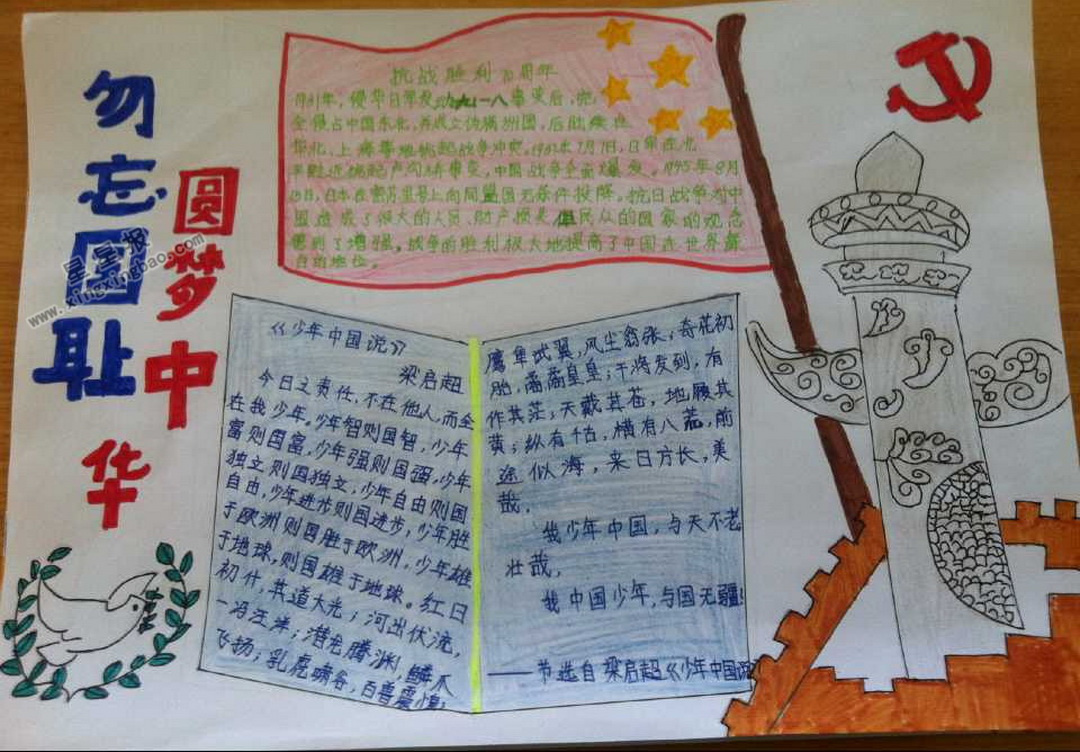 勿忘国耻
圆梦中华
星星报
www.xingxingbao.com
抗战胜利70周年
1931年,侵华日军发动九一八事变后,完
全侵占中国东北,并成立伪满洲国,后陆续在
华北,上海等地挑起战争冲突。1937年7月7日,日军在北
平附近挑起卢沟桥事变,中国战争全面爆发。1945年8月
15日,日本在密苏里号上向同盟国无条件投降。抗日战争对中
国造成了很大的人员,财产损失,但民众的国家的观念
得到了增强。战争的胜利极大地提高了中国在世界舞
台的地位。
《少年中国说》
梁启超
今日之责任,不在他人,而全
在我少年。少年智则国智,少年
富则国富,少年强则国强,少年
独立则国独立,少年自由则国
自由,少年进步则国进步,少年胜
于欧洲则国胜于欧洲,少年雄
于地球,则国雄于地球。红日
初升,其道大光;河出伏流,
一泻汪洋;潜龙腾渊,鳞爪
飞扬;乳虎啸谷,百兽震惶;
鹰隼试翼,风尘翕张;奇花初
胎,矞矞皇皇;干将发刑,有
作其茫;天戴其苍,地履其
黄;纵有千古,横有八荒,前
途似海,来日方长,美
哉,
我少年中国,与天不老
壮哉,
我中国少年,与国无疆!
——节选自梁启超《少年中国说》